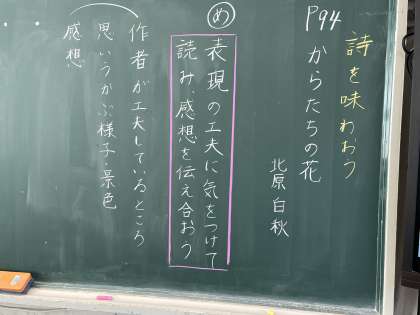 詩を味わおう
P94 からたちの花
北原白秋
め
表現の工夫に気をつけて
読み、感想を伝え合おう
作者が工夫しているところ
思いうかぶ様子・景色
感想